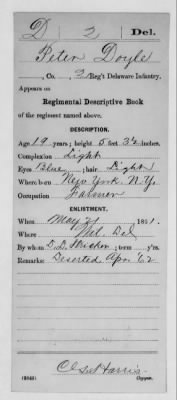 D 2 Del.
Peter Doyle
, Co. , 2 Reg't Delaware Infantry.
Appears on
Regimental Descriptive Book
of the regiment named above.
DESCRIPTION.
Age 19 years; height 5 feet 3½ inches.
Complexion Light
Eyes Blue ; hair Light
Where born New York, N.Y.
Occupation Farmer
ENLISTMENT.
When May 21 , 1861.
Where Wil. Del
By whom D. L. Stricker ; term yrs.
Remarks: Deserted Apr. 62
Harris
Copyist.